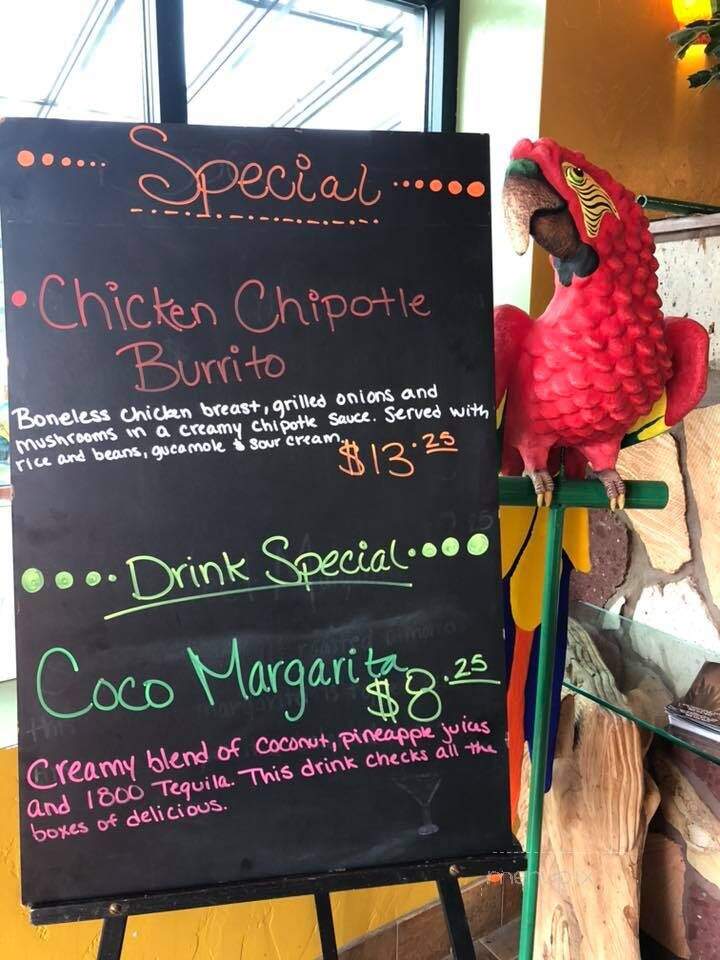 Special
Chicken Chipotle
Burrito
Boneless Chicken breast, grilled onions and
mushrooms in a creamy chipotle sauce. Served with
rice and beans, gucamole & sour cream.
$13.25
Drink Special
Coco Margarita
$8.25
Creamy blend of coconut, pineapple juices
and 1800 Tequila. This drink checks all the
boxes of delicious.